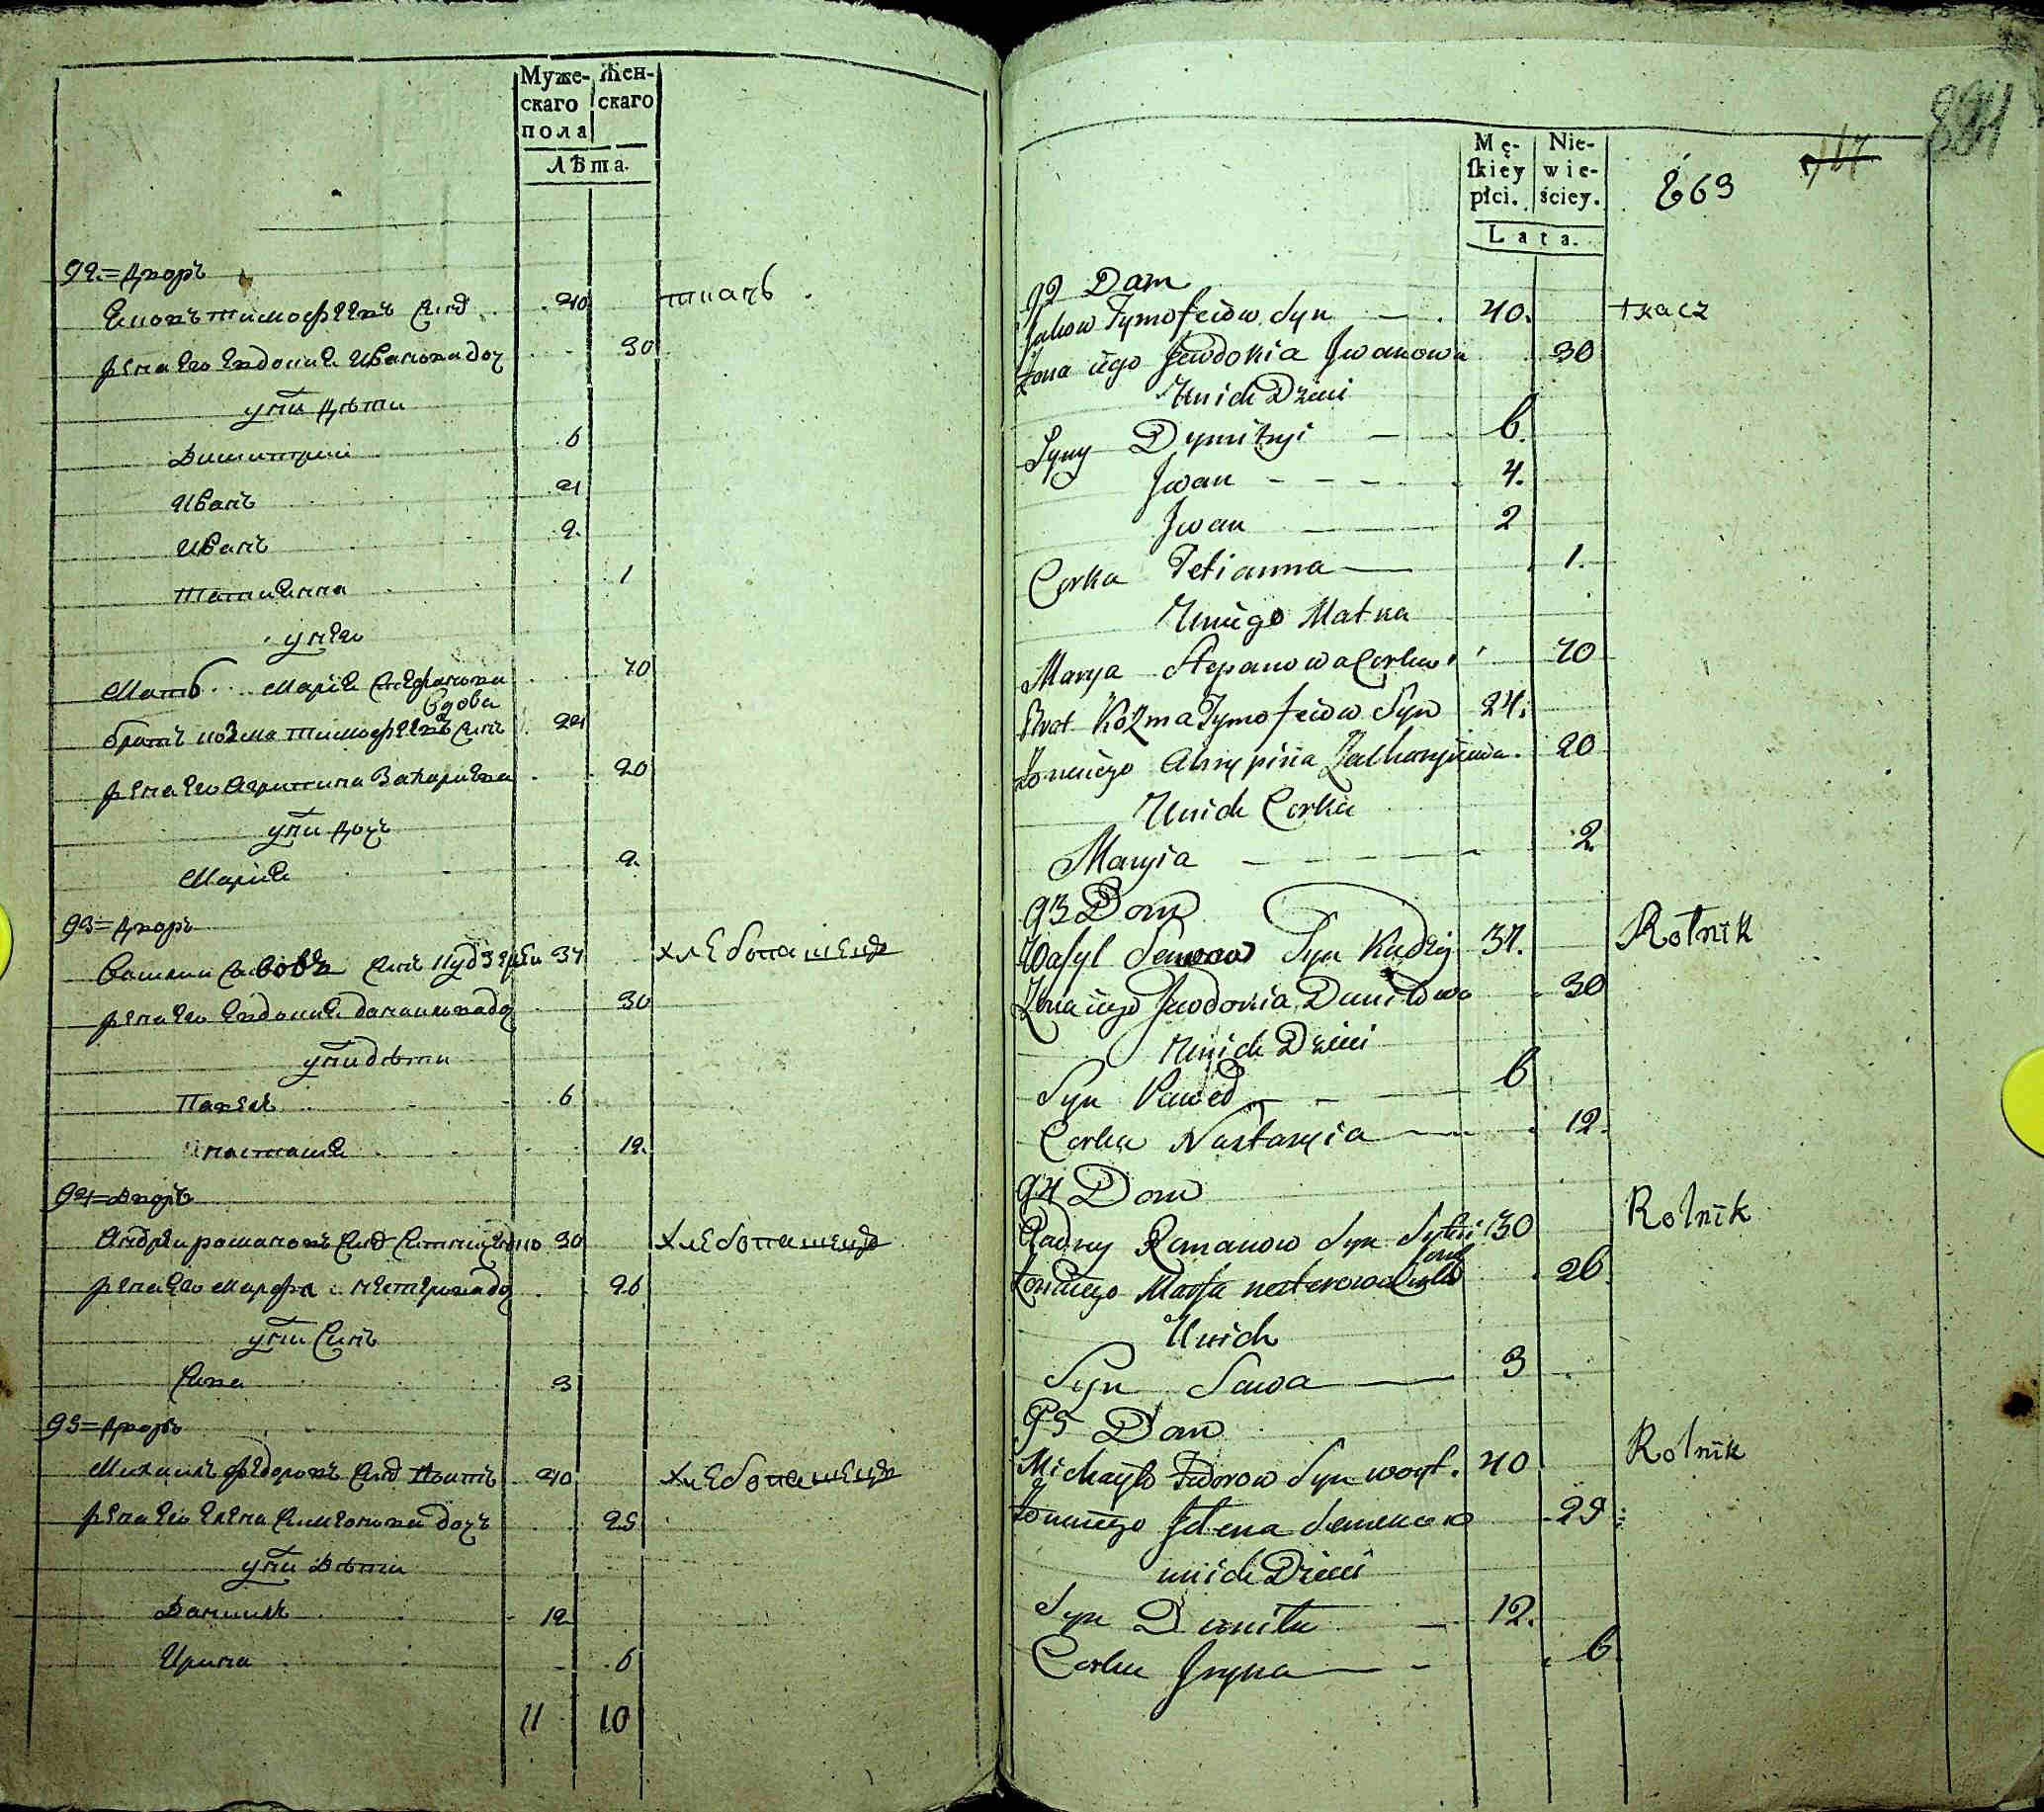 Муже-
скаго
пола
Жен-
скаго
Лѣта.
92.= дворъ
Яковъ тимофеевъ Синъ 40 ткачь
жена его Евдокия Иванова доч 30
у них дѣти
Димитрий 6
Иванъ 4
Иванъ 2.
Татиянна 1
у него
Мать Мария Стефанова 70
вдова
братъ козма тимофеевъ Синъ 24
жена его Агрипина Захариева 20
у них дочъ
Мария 2.
93= дворъ
Василий Синъ 37 хлебопашецъ
жена его Евдокия данилова доч 30
у них дѣти
Павелъ 6
Настасия 12.
94= дворъ
Андрей романовъ Синъ 30 хлебопашецъ
жена его марфа нестерова доч 26
у них Синъ
Сава 3
95= дворъ
Михаилъ федоровъ Синъ 40 хлебопашецъ
жена его Елена Симеонова дочъ 25
у них дѣти
Даниилъ 12
Ирина 6
11 10
894
Mę-
ſkiey
płci.
Nie-
wie-
ściey.
Lata.
869
92 Dom
Jakow Tymofeiow Syn 40. tkacz
Zona iego Jewdokia Jwanowa 30
U nich Dzieci
Syny Dymitryi 6.
Jwan 4.
Jwan 2
Corka Tetianna 1.
U niego Matka
Marya Stepanowa Corka 70
Brat Kozma Tymofeiow Syn 24.
Zona iego Ahrypina Zacharyiewa. 20
U nich Corka
Maryia 2
93 Dom
Wasyl Syn 37. Rolnik
Zona iego Jewdokia Daniłowa 30
U nich Dzieci
Syn Paweł 6
Corka Nastasyia 12.
94 Dom
Romanow Syn 30 Rolnik
Zona iego Marfa nesterowa Corka 26
U nich
Syn Sawa 3
95 Dom
Michayło Fedorow Syn woyt. 40 Rolnik
Zona iego Jelena 25
u nich Dzieci
Syn Daniło 12.
Corka Jryna 6